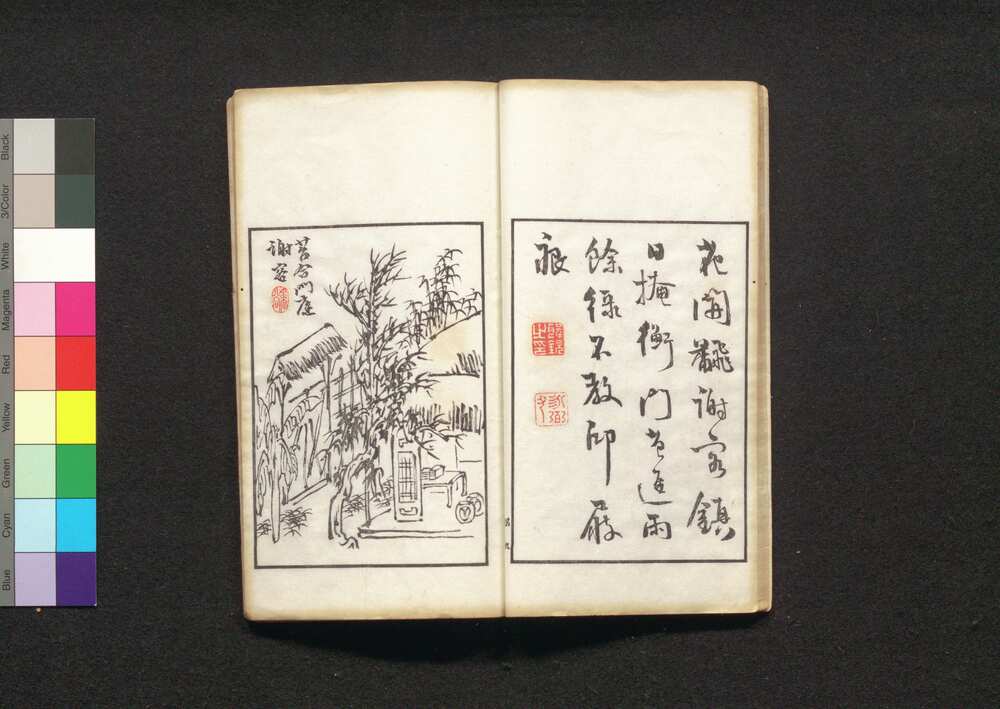 花開翻謝客鎮
日掩衡門苔逕雨
餘緑不教印屐
痕
謝客
Black
3/Color
White
Magenta
Red
Yellow
Green
Cyan
Blue